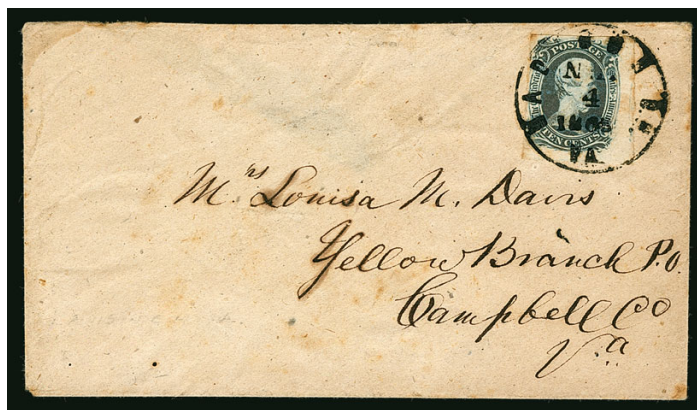 POSTAGE
TEN CENTS
4
VA
Mrs Louisa M. Davis
Yellow Branch P.O.
Campbell Co
Va